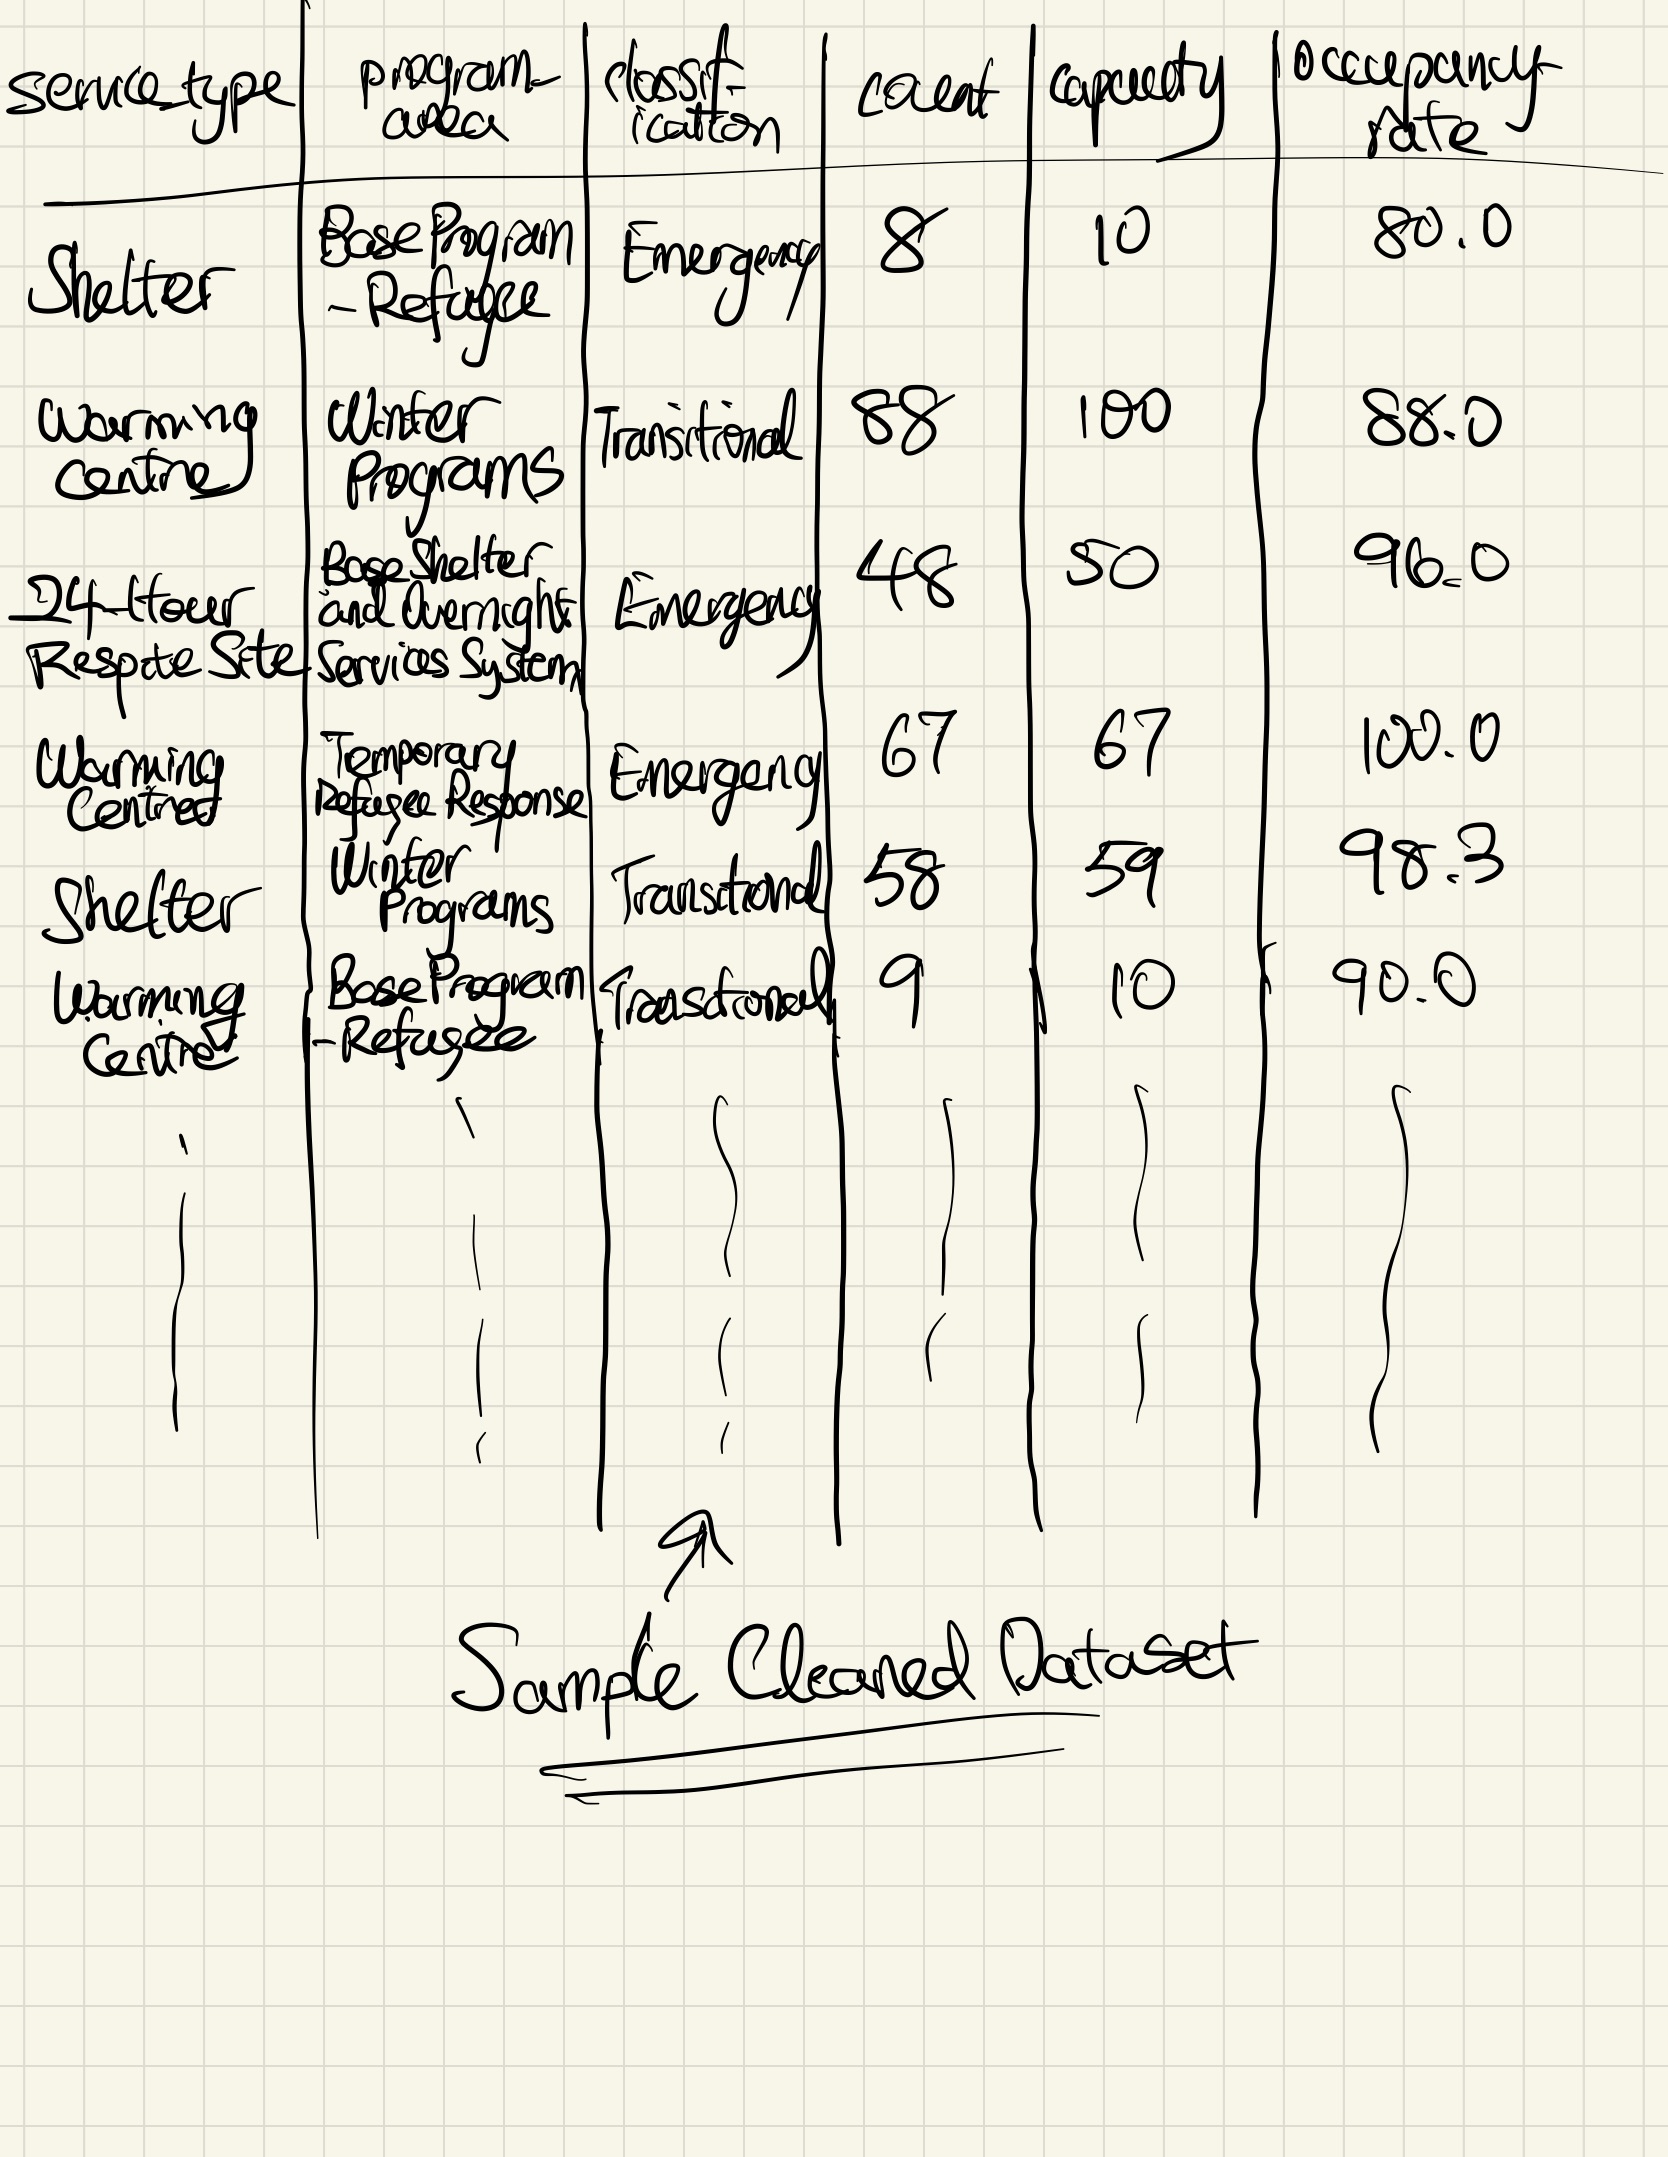 service_type program_area classification count capacity occupancy_rate
Shelter Base Program - Refugee Emergency 8 10 80.0
Warming Centre Winter Programs Transitional 88 100 88.0
24-Hour Respite Site Base Shelter and Overnight Services System Emergency 48 50 96.0
Warming Centred Temporary Refugee Response Emergency 67 67 100.0
Shelter Winter Programs Transitional 58 59 98.3
Warming Centre Base Program - Refugee Transitional 9 10 90.0
Sample Cleaned Dataset